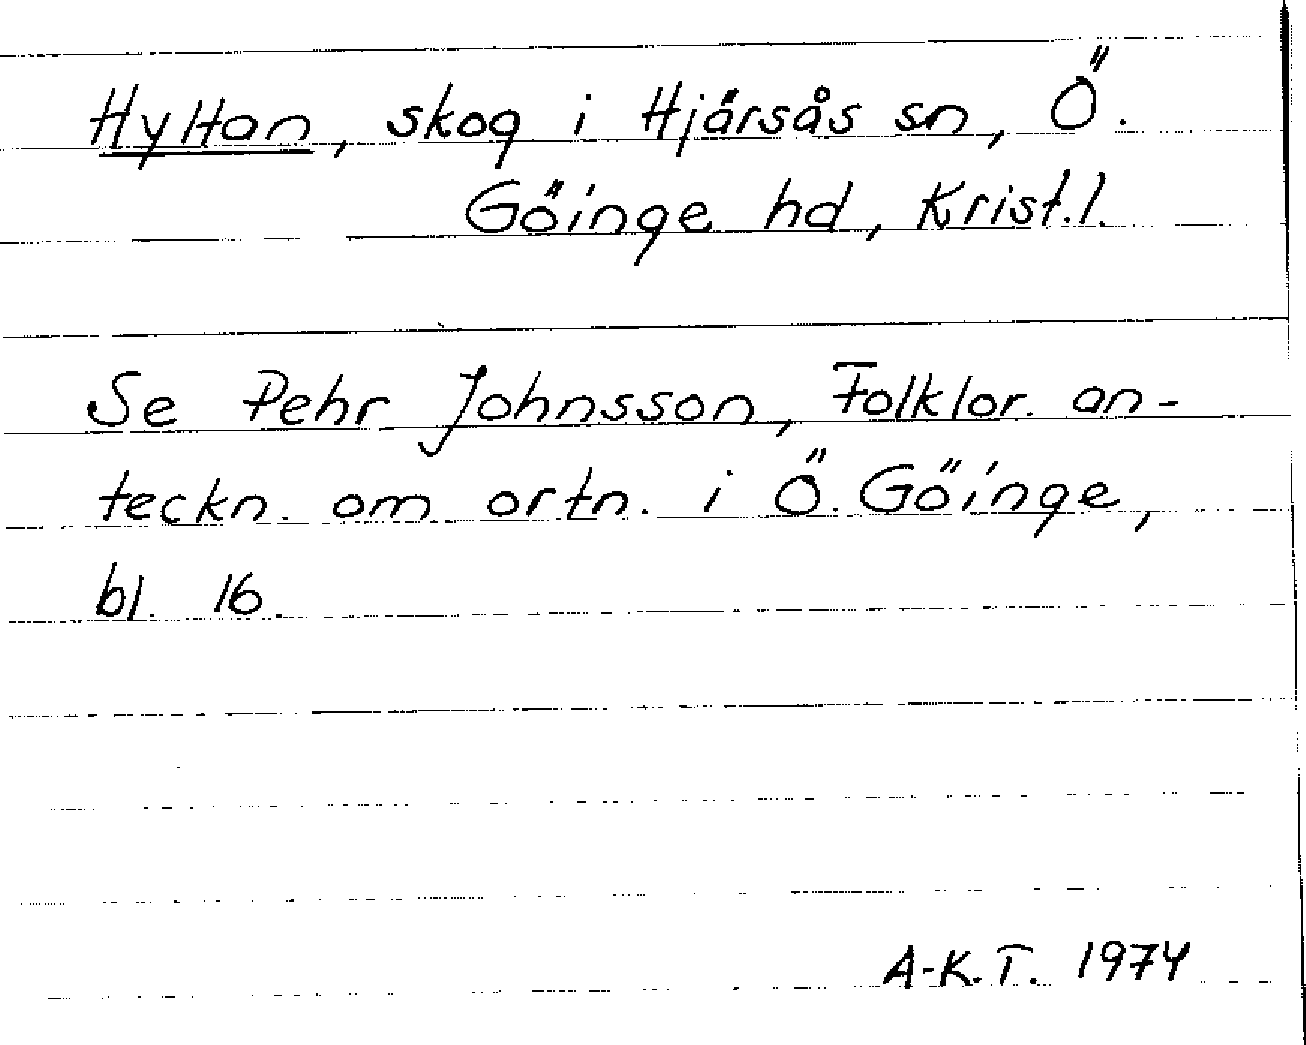 Hyltan, skog i Hjärsås sn, Ö.
Göinge hd, Krist.l.
Se Pehr Johnsson, Folklor. an-
teckn. om ortn. i Ö. Göinge,
bl. 16.
A-K.T. 1974